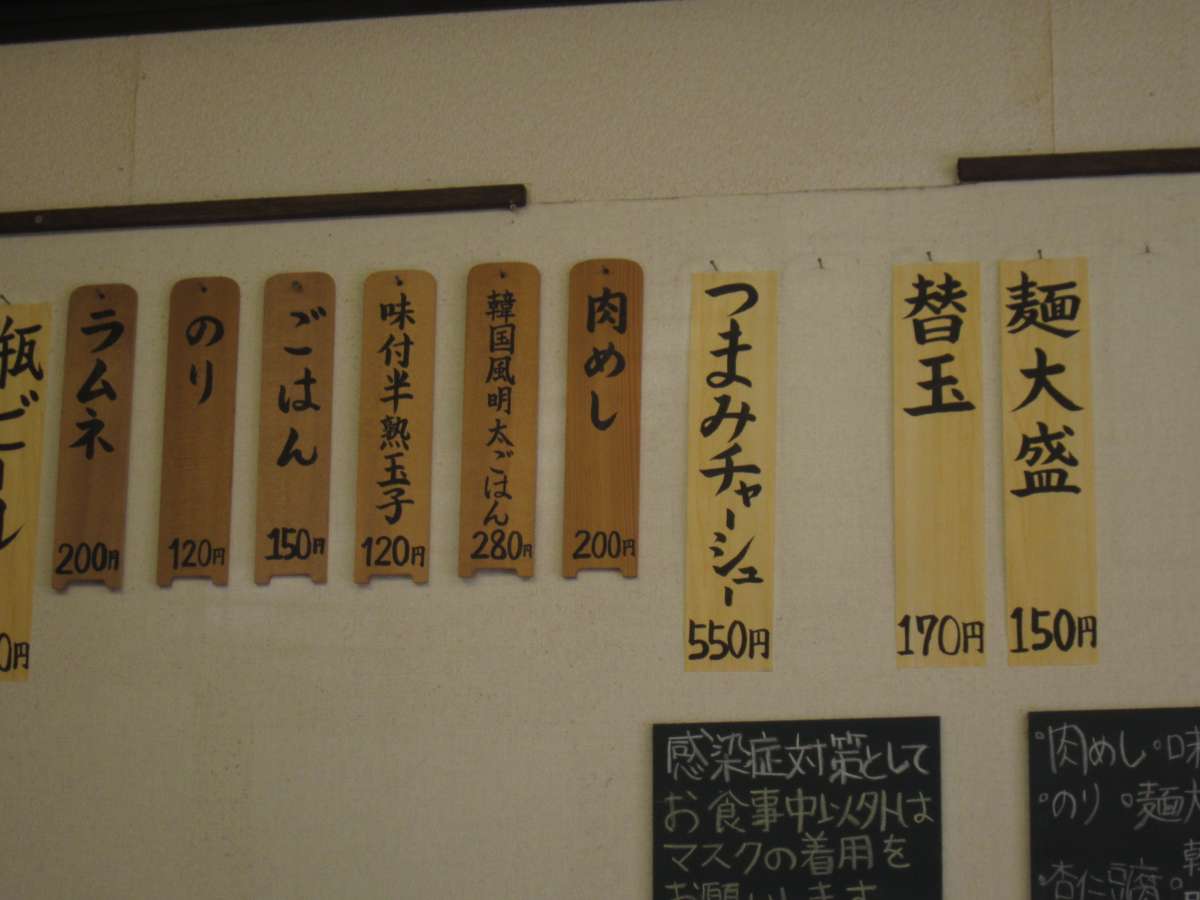 麺大盛
150円
替玉
170円
つまみチャーシュー
550円
肉めし
200円
韓国風明太ごはん
280円
味付半熟玉子
120円
ごはん
150円
のり
120円
ラムネ
200円
瓶ビール
0円
感染症対策として
お食事中以外は
マスクの着用を
お願いします
°肉めし°味
°のり °麺大
°杏仁豆腐°